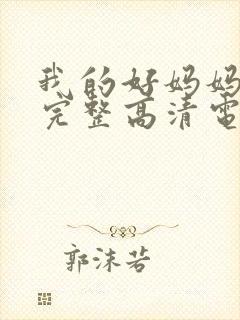 我的好妈妈
完整高清電
郭沫若